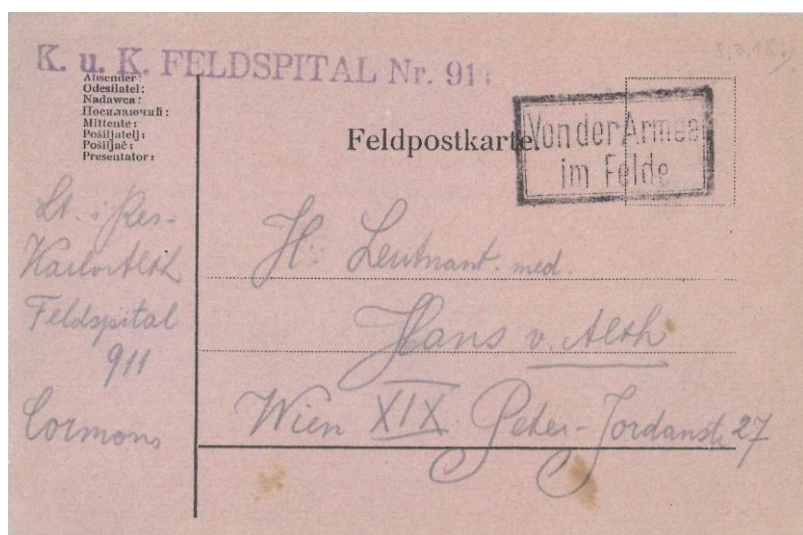 K. u. K. FELDSPITAL Nr. 911
8.3.18.
Absender:
Odesílatel:
Nadawca:
Посилаючий:
Mittente:
Pošiljatelj:
Pošiljač:
Presentator:
Feldpostkarte.
Von der Armee
im Felde
Lt. i. Res.
Karl v Alth
Feldspital
911
Cormons
H. Leutnant. med.
Hans v. Alth
Wien XIX Peter-Jordanstr 27